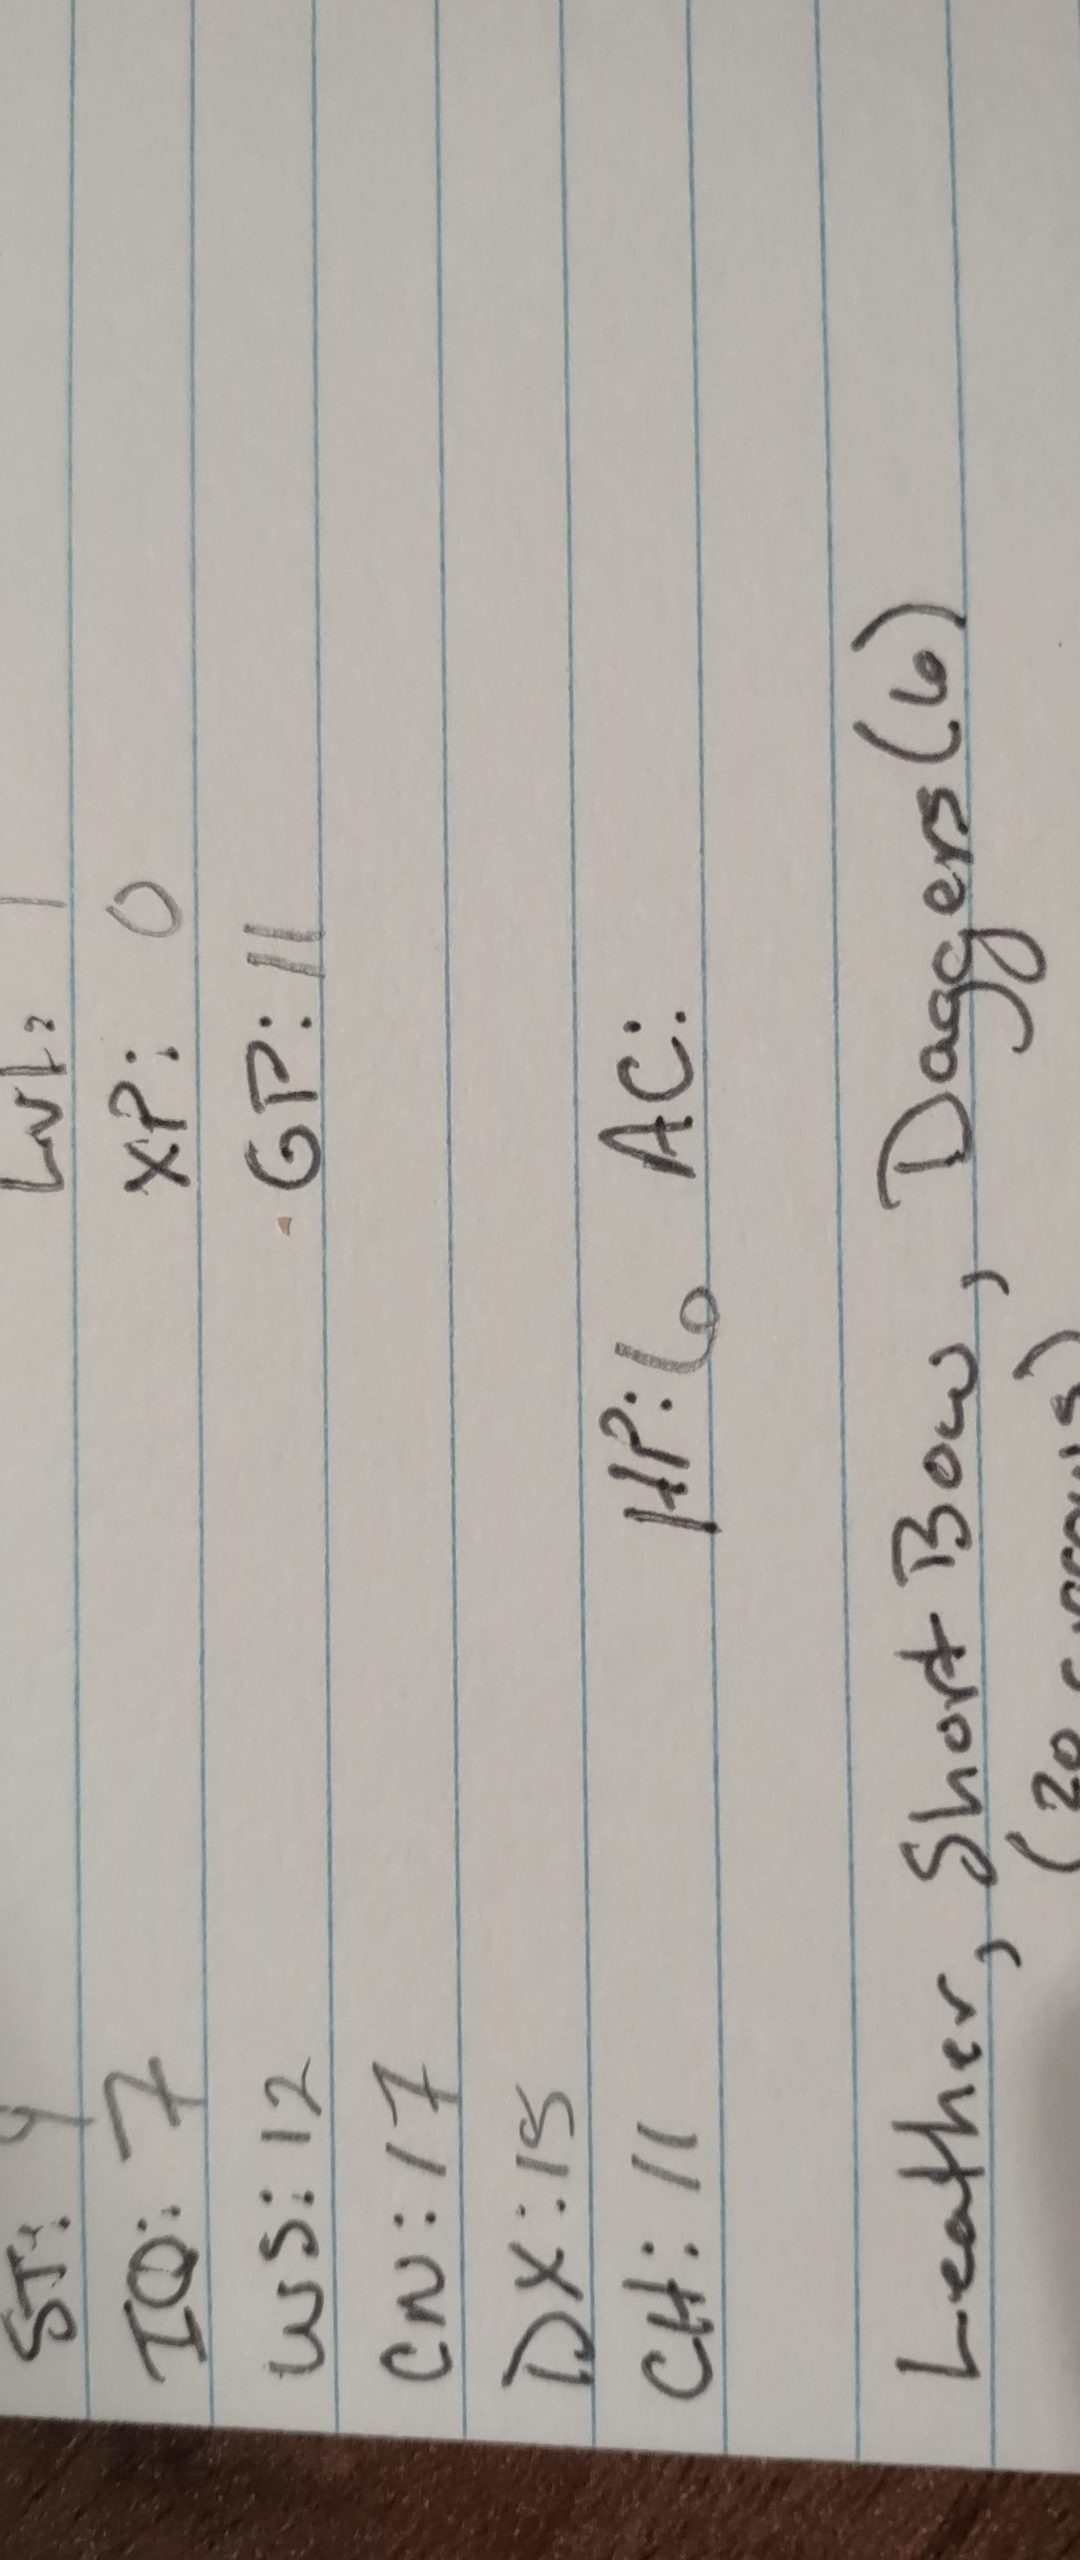 ST: 9 Lvl: 1
IQ: 7 XP: 0
WS: 12 GP: 11
CN: 17
DX: 15
CH: 11 HP: 6 AC:
Leather, Short Bow, Daggers (6)
(20 arrows)